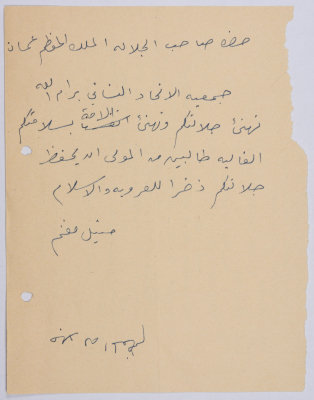 حضرة صاحب الجلاله الملك المعظم عمان
جمعيه الاتحاد النسائي برام الله
تهنئ جلالتكم وتهنئ بسلامتكم
الغاليه طالبين من المولى ان يحفظ
جلالتكم ذخرا للعروبه والاسلام